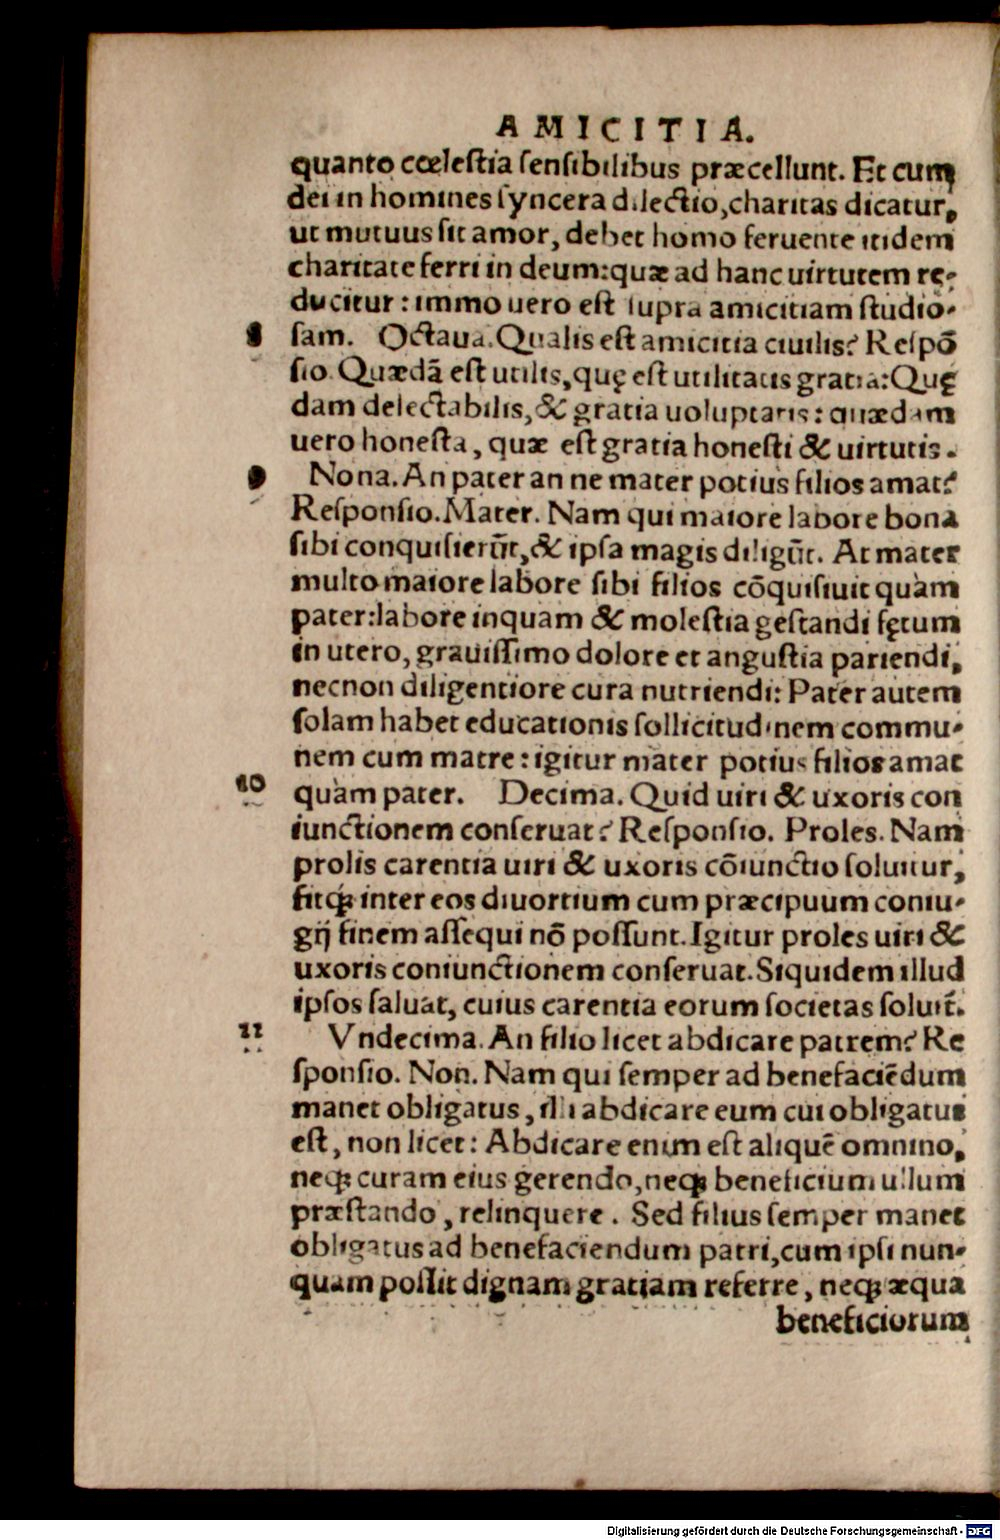 AMICITIA.
quanto cœlestia sensibilibus præcellunt. Et cum
dei in homines syncera dilectio, charitas dicatur,
ut mutuus sit amor, debet homo feruente itidem
charitate ferri in deum: quæ ad hanc uirtutem re-
ducitur: immo uero est supra amicitiam studio-
8 sam. Octaua. Qualis est amicitia ciuilis? Respõ
sio. Quædã est utilis, quę est utilitatis gratia: Quę
dam delectabilis, & gratia uoluptatis: quædam
uero honesta, quæ est gratia honesti & uirtutis.
9 Nona. An pater an ne mater potius filios amat?
Responsio. Mater. Nam qui maiore labore bona
sibi conquisierũt, & ipsa magis diligũt. At mater
multo maiore labore sibi filios cõquisiuit quàm
pater: labore inquam & molestia gestandi fętum
in utero, grauissimo dolore et angustia pariendi,
necnon diligentiore cura nutriendi: Pater autem
solam habet educationis sollicitudinem commu-
nem cum matre: igitur mater potius filios amat
10 quàm pater. Decima. Quid uiri & uxoris con
iunctionem conseruat? Responsio. Proles. Nam
prolis carentia uiri & uxoris cõiunctio soluitur,
fitq; inter eos diuortium cum præcipuum coniu-
gij finem assequi nõ possunt. Igitur proles uiri &
uxoris coniunctionem conseruat. Siquidem illud
ipsos saluat, cuius carentia eorum societas soluit̃.
11 Vndecima. An filio licet abdicare patrem? Re
sponsio. Non. Nam qui semper ad benefaciẽdum
manet obligatus, illi abdicare eum cui obligatus
est, non licet: Abdicare enim est aliquẽ omnino,
neq; curam eius gerendo, neq; beneficium ullum
præstando, relinquere. Sed filius semper manet
obligatus ad benefaciendum patri, cum ipsi nun-
quam possit dignam gratiam referre, neq; æqua
beneficiorum
Digitalisierung gefördert durch die Deutsche Forschungsgemeinschaft - DFG